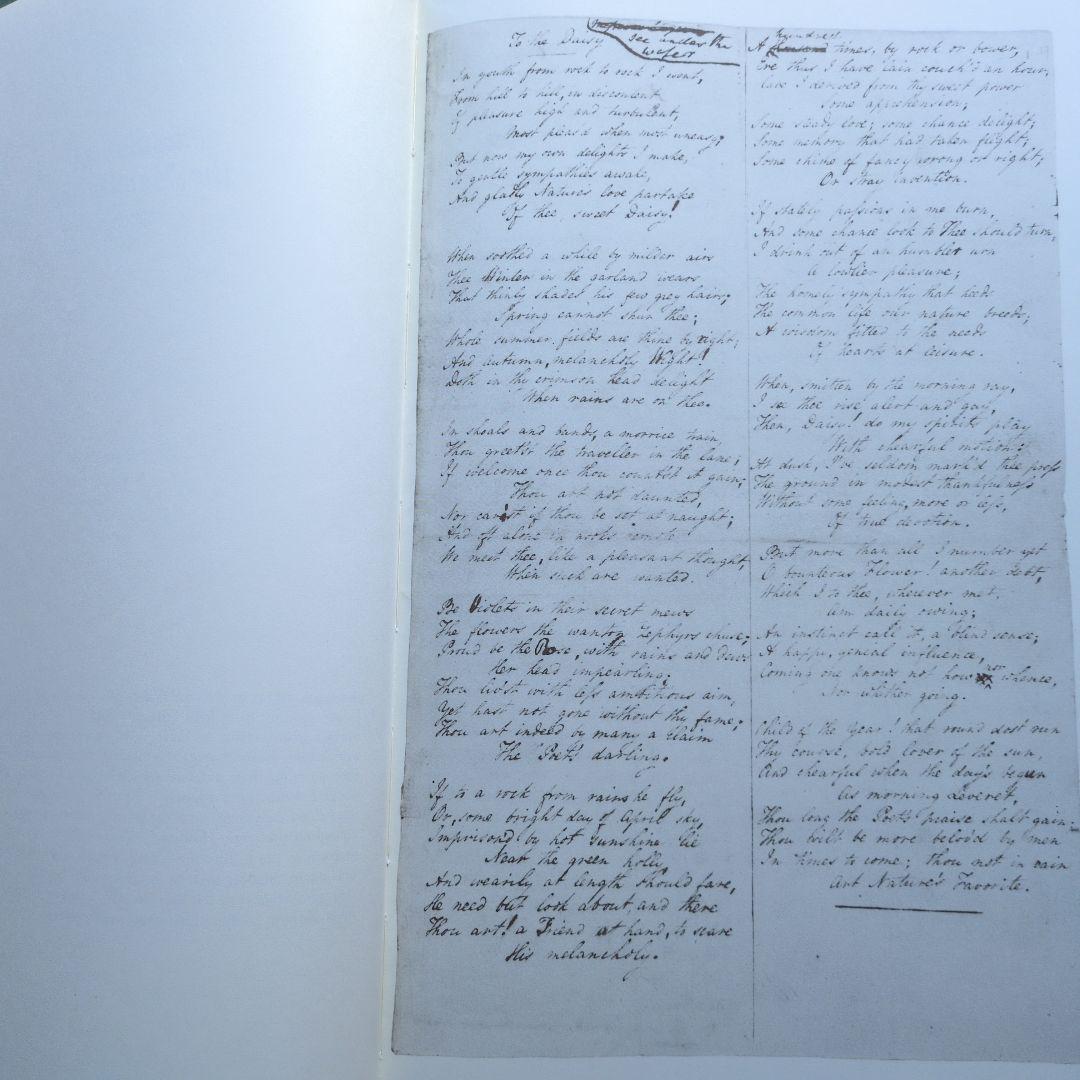 To the Daisy
see under the
wafer
In youth from rock to rock I went,
From hill to hill, in discontent
Of pleasure high and turbulent,
Most pleas'd when most uneasy;
But now my own delights I make,
To gentle sympathies awake,
And gladly Nature's love partake
Of thee, sweet Daisy!
When soothed a while by milder airs
Thee Winter in the garland wears
That thinly shades his few grey hairs;
Spring cannot shun thee;
Whole summer fields are thine by right;
And autumn, melancholy Wight!
Doth in thy crimson head delight
When rains are on thee.
In shoals and bands, a morrice train,
Thou greet'st the traveller in the lane;
If welcome once thou count'st it gain;
Thou art not daunted,
Nor car'st if thou be set at naught;
And oft alone in nooks remote
We meet thee, like a pleasant thought,
When such are wanted.
Be Violets in their secret mews
The flowers the wanton Zephyrs chuse;
Proud be the Rose, with rains and dews
Her head impearling;
Thou liv'st with less ambitious aim,
Yet hast not gone without thy fame;
Thou art indeed by many a claim
The Poet's darling.
If to a rock from rains he fly,
Or, some bright day of April sky,
Imprison'd by hot sunshine lie
Near the green holly,
And wearily at length should fare,
He need but look about, and there
Thou art! a Friend at hand, to scare
His melancholy.
hundred
A times, by rock or bower,
Ere thus I have lain couch'd an hour,
Have I derived from thy sweet power
Some apprehension;
Some steady love; some chance delight;
Some memory that had taken flight;
Some chime of fancy wrong or right;
Or stray invention.
If stately passions in me burn,
And some chance look to Thee should turn,
I drink out of an humbler urn
A lowlier pleasure;
The homely sympathy that heeds
The common life our nature breeds;
A wisdom fitted to the needs
Of hearts at leisure.
When, smitten by the morning ray,
I see thee rise alert and gay,
Then, Daisy! do my spirits play
With chearful motion:
At dusk, I've seldom mark'd thee press
The ground in modest thankfulness
Without some feeling, more or less,
Of true devotion.
But more than all I number yet
O bounteous Flower! another debt,
Which I to thee, wherever met,
Am daily owing;
An instinct call it, a blind sense;
A happy, genial influence,
Coming one knows not how nor whence,
Nor whither going.
Child of the Year! that round dost run
Thy course, bold lover of the sun,
And chearful when the day's begun
As morning Leveret,
Thou long the Poet's praise shalt gain;
Thou wilt be more belov'd by men
In times to come; thou not in vain
Art Nature's Favorite.